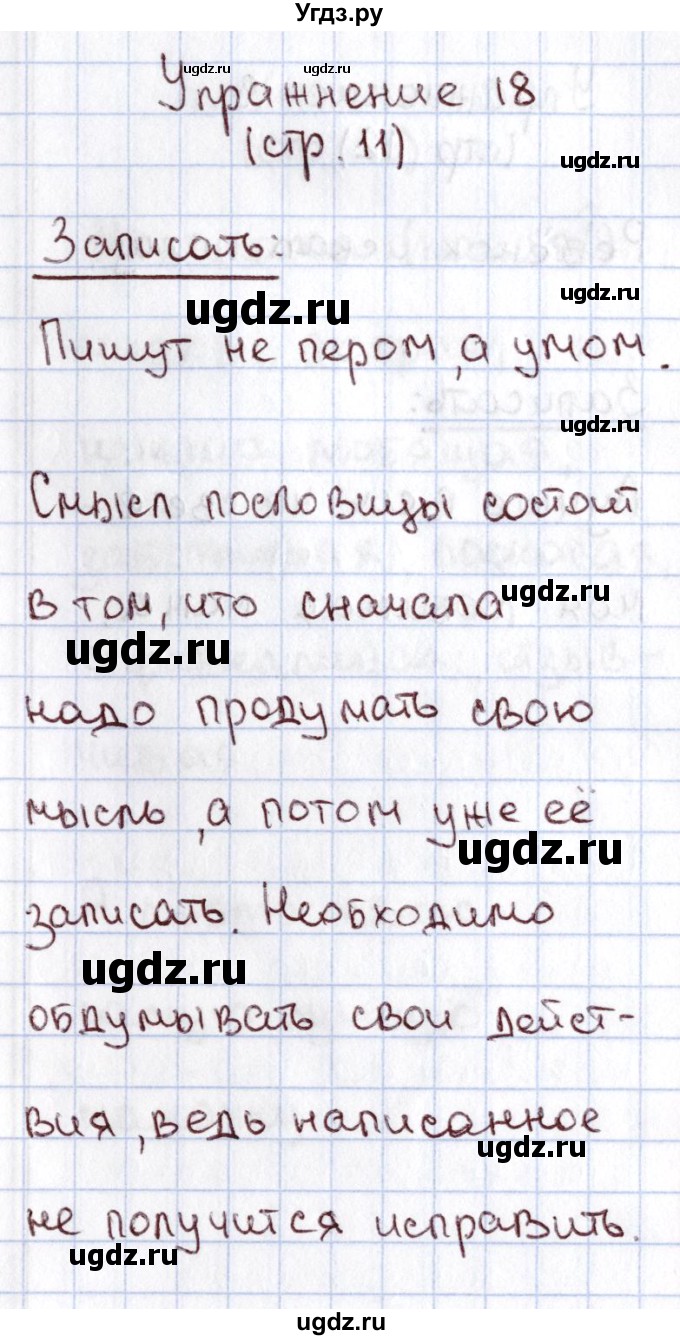 Угдз.ру
ugdz.ru ugdz.ru
Упражнение 18
(стр. 11)
ugdz.ru
Записать:
ugdz.ru
ugdz.ru
Пишут не пером, а умом.
ugdz.ru
Смысл пословицы состоит
в том, что сначала
ugdz.ru
ugdz.ru
надо продумать свою
мысль, а потом уже её
ugdz.ru
записать. Необходимо
ugdz.ru
обдумывать свои дейст-
вия, ведь написанное
ugdz.ru
не получится исправить.
ugdz.ru
ugdz.ru